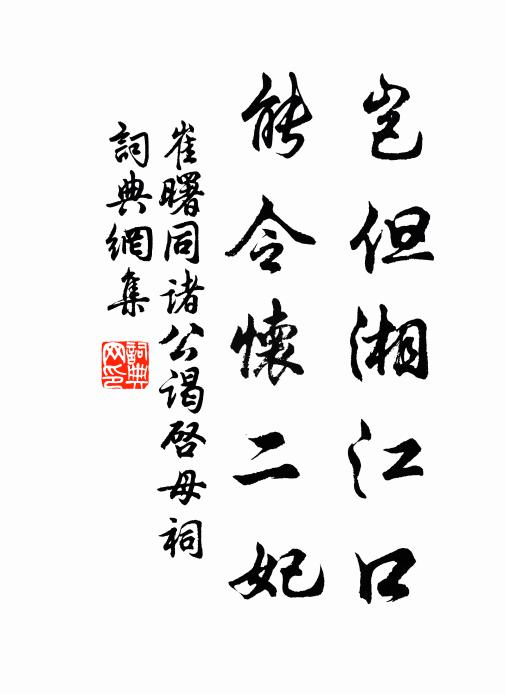 豈但湘江口
能令懷二妃
崔曙同诸公謁啓母祠
詞典網集
詞典网印